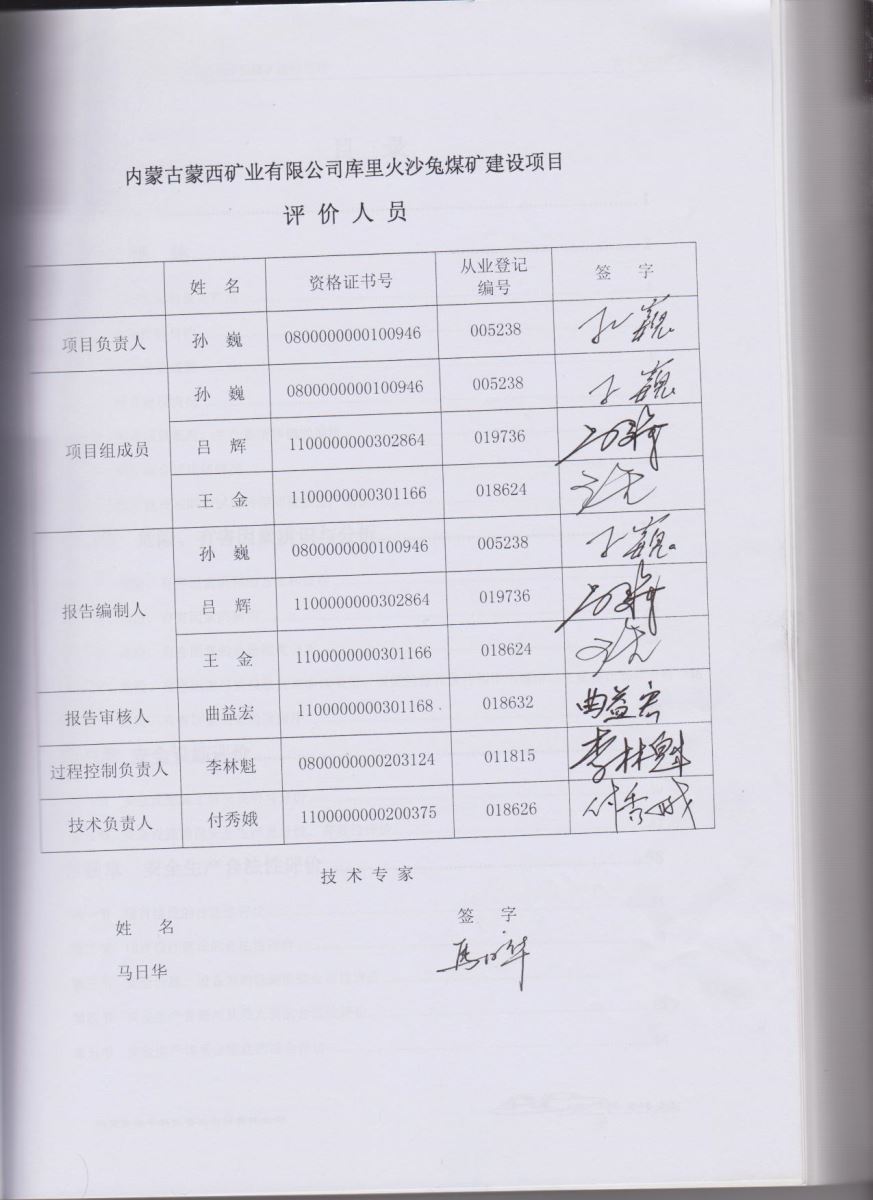 内蒙古蒙西矿业有限公司库里火沙兔煤矿建设项目
评价人员
姓名 资格证书号 从业登记编号 签字
项目负责人 孙巍 0800000000100946 005238 孙巍
项目组成员 孙巍 0800000000100946 005238 孙巍
吕辉 1100000000302864 019736 吕辉
王金 1100000000301166 018624 王金
报告编制人 孙巍 0800000000100946 005238 孙巍
吕辉 1100000000302864 019736 吕辉
王金 1100000000301166 018624 王金
报告审核人 曲益宏 1100000000301168 018632 曲益宏
过程控制负责人 李林魁 0800000000203124 011815 李林魁
技术负责人 付秀娥 1100000000200375 018626 付秀娥
技术专家
姓名 签字
马日华 马日华